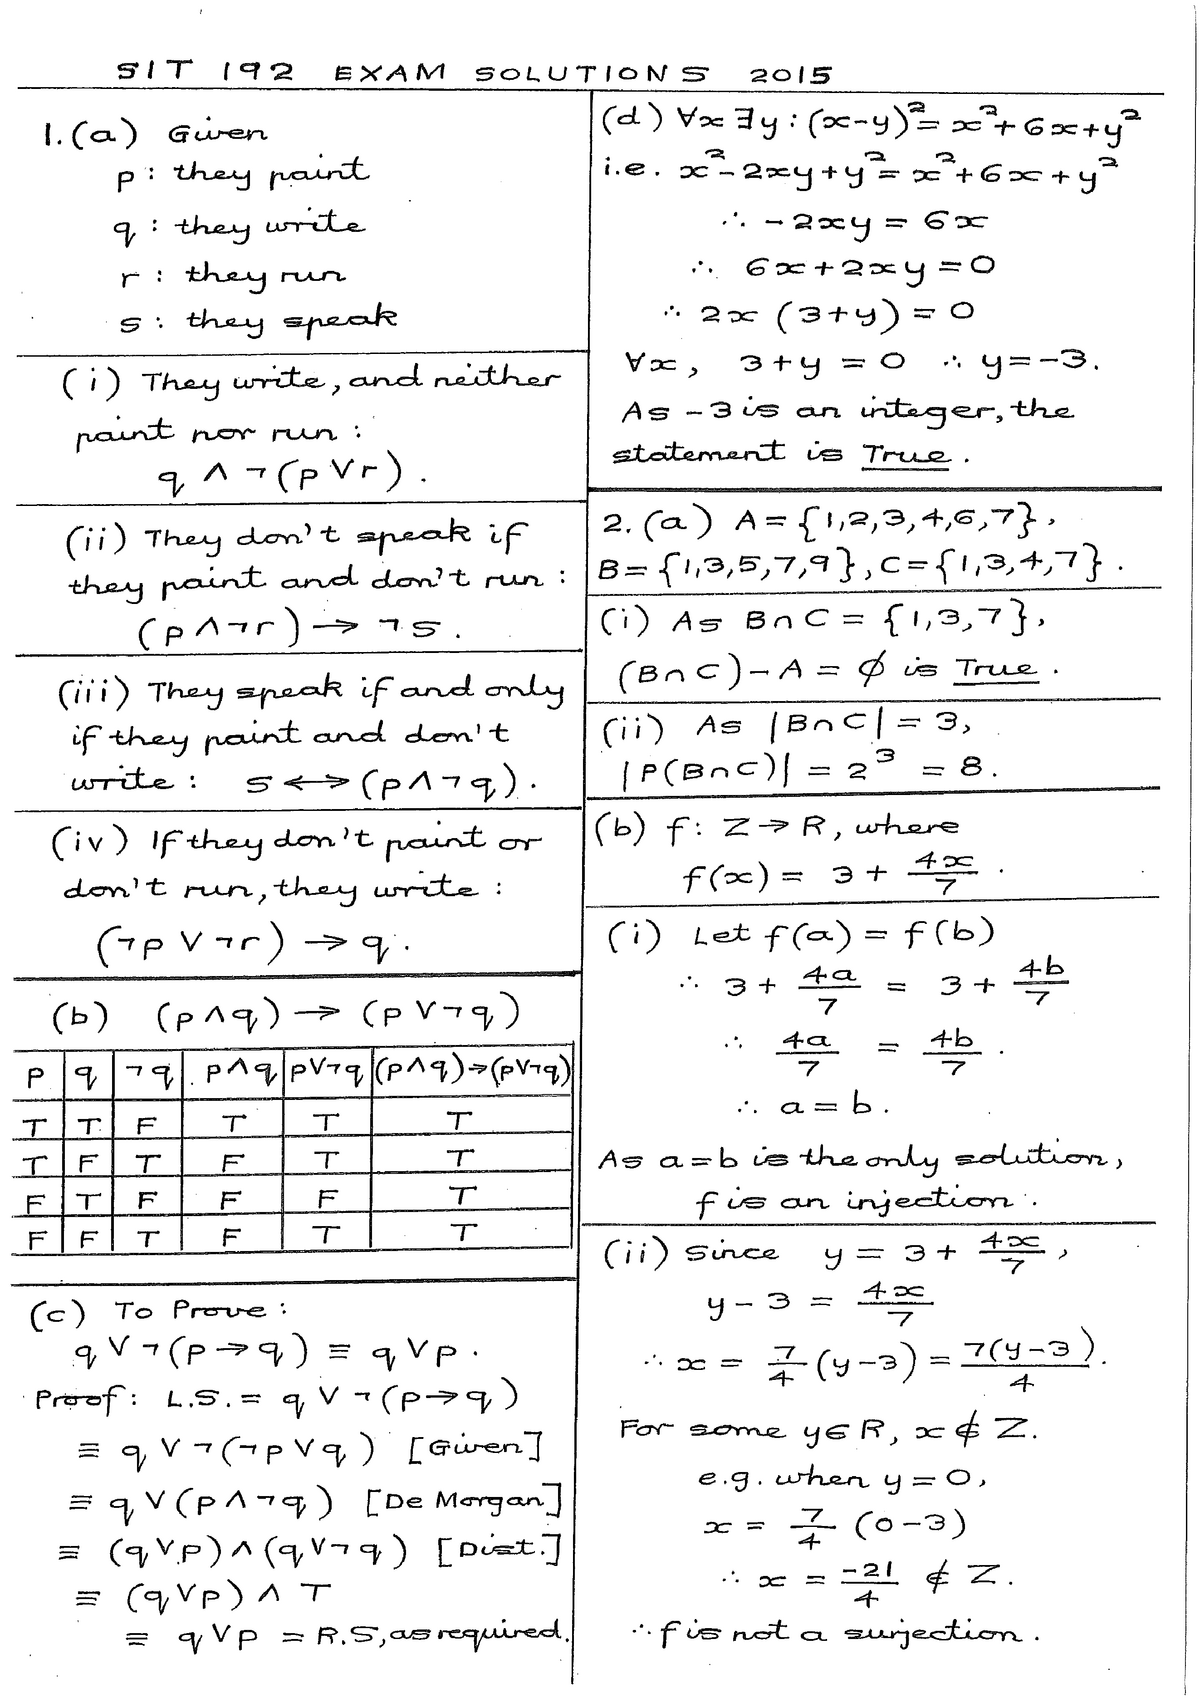 SIT 192 EXAM SOLUTIONS 2015
1. (a) Given
p : they paint
q : they write
r : they run
s : they speak
(i) They write, and neither
paint nor run :
q ∧ ¬(p ∨ r) .
(ii) They don't speak if
they paint and don't run :
(p ∧ ¬r) → ¬s .
(iii) They speak if and only
if they paint and don't
write : s ↔ (p ∧ ¬q) .
(iv) If they don't paint or
don't run, they write :
(¬p ∨ ¬r) → q .
(b) (p ∧ q) → (p ∨ ¬q)
p q ¬q p∧q p∨¬q (p∧q)→(p∨¬q)
T T F T T T
T F T F T T
F T F F F T
F F T F T T
(c) To Prove :
q ∨ ¬(p → q) ≡ q ∨ p .
Proof : L.S. = q ∨ ¬(p → q)
≡ q ∨ ¬(¬p ∨ q) [Given]
≡ q ∨ (p ∧ ¬q) [De Morgan]
≡ (q ∨ p) ∧ (q ∨ ¬q) [Dist.]
≡ (q ∨ p) ∧ T
≡ q ∨ p = R.S, as required.
(d) ∀x ∃y : (x-y)² = x² + 6x + y²
i.e. x² - 2xy + y² = x² + 6x + y²
∴ -2xy = 6x
∴ 6x + 2xy = 0
∴ 2x (3+y) = 0
∀x, 3+y = 0 ∴ y = -3.
As -3 is an integer, the
statement is True .
2. (a) A = {1,2,3,4,6,7} ,
B = {1,3,5,7,9} , C = {1,3,4,7} .
(i) As B∩C = {1,3,7} ,
(B∩C) - A = ∅ is True .
(ii) As |B∩C| = 3,
|P(B∩C)| = 2³ = 8.
(b) f : Z → R, where
f(x) = 3 + 4x/7 .
(i) Let f(a) = f(b)
∴ 3 + 4a/7 = 3 + 4b/7
∴ 4a/7 = 4b/7 .
∴ a = b .
As a = b is the only solution,
f is an injection .
(ii) Since y = 3 + 4x/7 ,
y - 3 = 4x/7
∴ x = 7/4 (y-3) = 7(y-3)/4 .
For some y ∈ R, x ∉ Z.
e.g. when y = 0,
x = 7/4 (0-3)
∴ x = -21/4 ∉ Z.
∴ f is not a surjection .